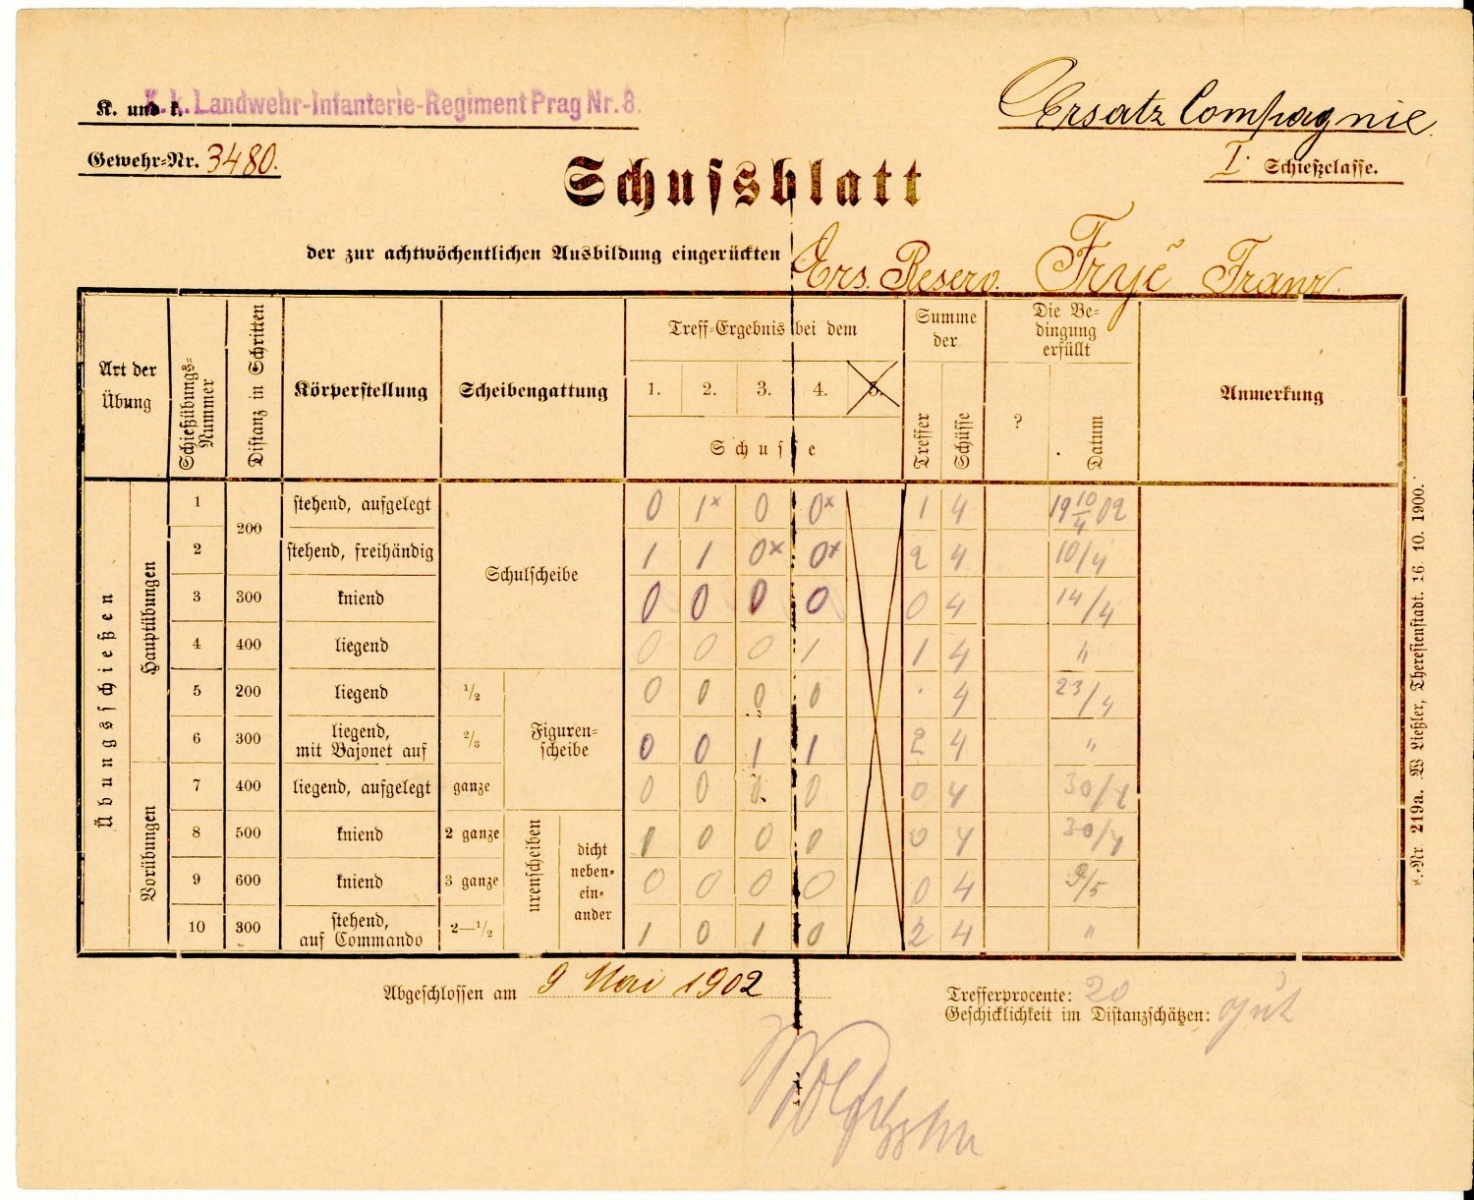 K. und k. K. k. Landwehr-Infanterie-Regiment Prag Nr. 8.
Ersatz Compagnie
Gewehr-Nr. 3480.
I. Schießclasse.
Schussblatt
der zur achtwöchentlichen Ausbildung eingerückten Ers. Reserv. Fryč Franz
Art der Übung | Schießübungs-Nummer | Distanz in Schritten | Körperstellung | Scheibengattung | Treff-Ergebnis bei dem | Summe der | Die Bedingung erfüllt | Anmerkung
1. | 2. | 3. | 4. | 5. | Treffer | Schüsse | ? | Datum
Schusse
Übungsschießen
Hauptübungen
1 | 200 | stehend, aufgelegt | Schulscheibe | 0 | 1× | 0 | 0× | 1 | 4 | 19 10/4 02
2 | stehend, freihändig | 1 | 1 | 0× | 0× | 2 | 4 | 10/4
3 | 300 | kniend | 0 | 0 | 0 | 0 | 0 | 4 | 14/4
4 | 400 | liegend | 0 | 0 | 0 | 1 | 1 | 4 | "
5 | 200 | liegend | 1/2 | Figuren-scheibe | 0 | 0 | 0 | 0 | · | 4 | 23/4
6 | 300 | liegend, mit Bajonet auf | 2/3 | 0 | 0 | 1 | 1 | 2 | 4 | "
Vorübungen
7 | 400 | liegend, aufgelegt | ganze | 0 | 0 | 0 | 0 | 0 | 4 | 30/4
8 | 500 | kniend | 2 ganze | urenscheiben | dicht neben-ein-ander | 1 | 0 | 0 | 0 | 0 | 4 | 30/4
9 | 600 | kniend | 3 ganze | 0 | 0 | 0 | 0 | 0 | 4 | 9/5
10 | 300 | stehend, auf Commando | 2—1/2 | 1 | 0 | 1 | 0 | 2 | 4 | "
Abgeschlossen am 9 Mai 1902
Trefferprocente: 20
Geschicklichkeit im Distanzschätzen: gut
Nr 219a. W Ließler, Theresienstadt. 16. 10. 1900.